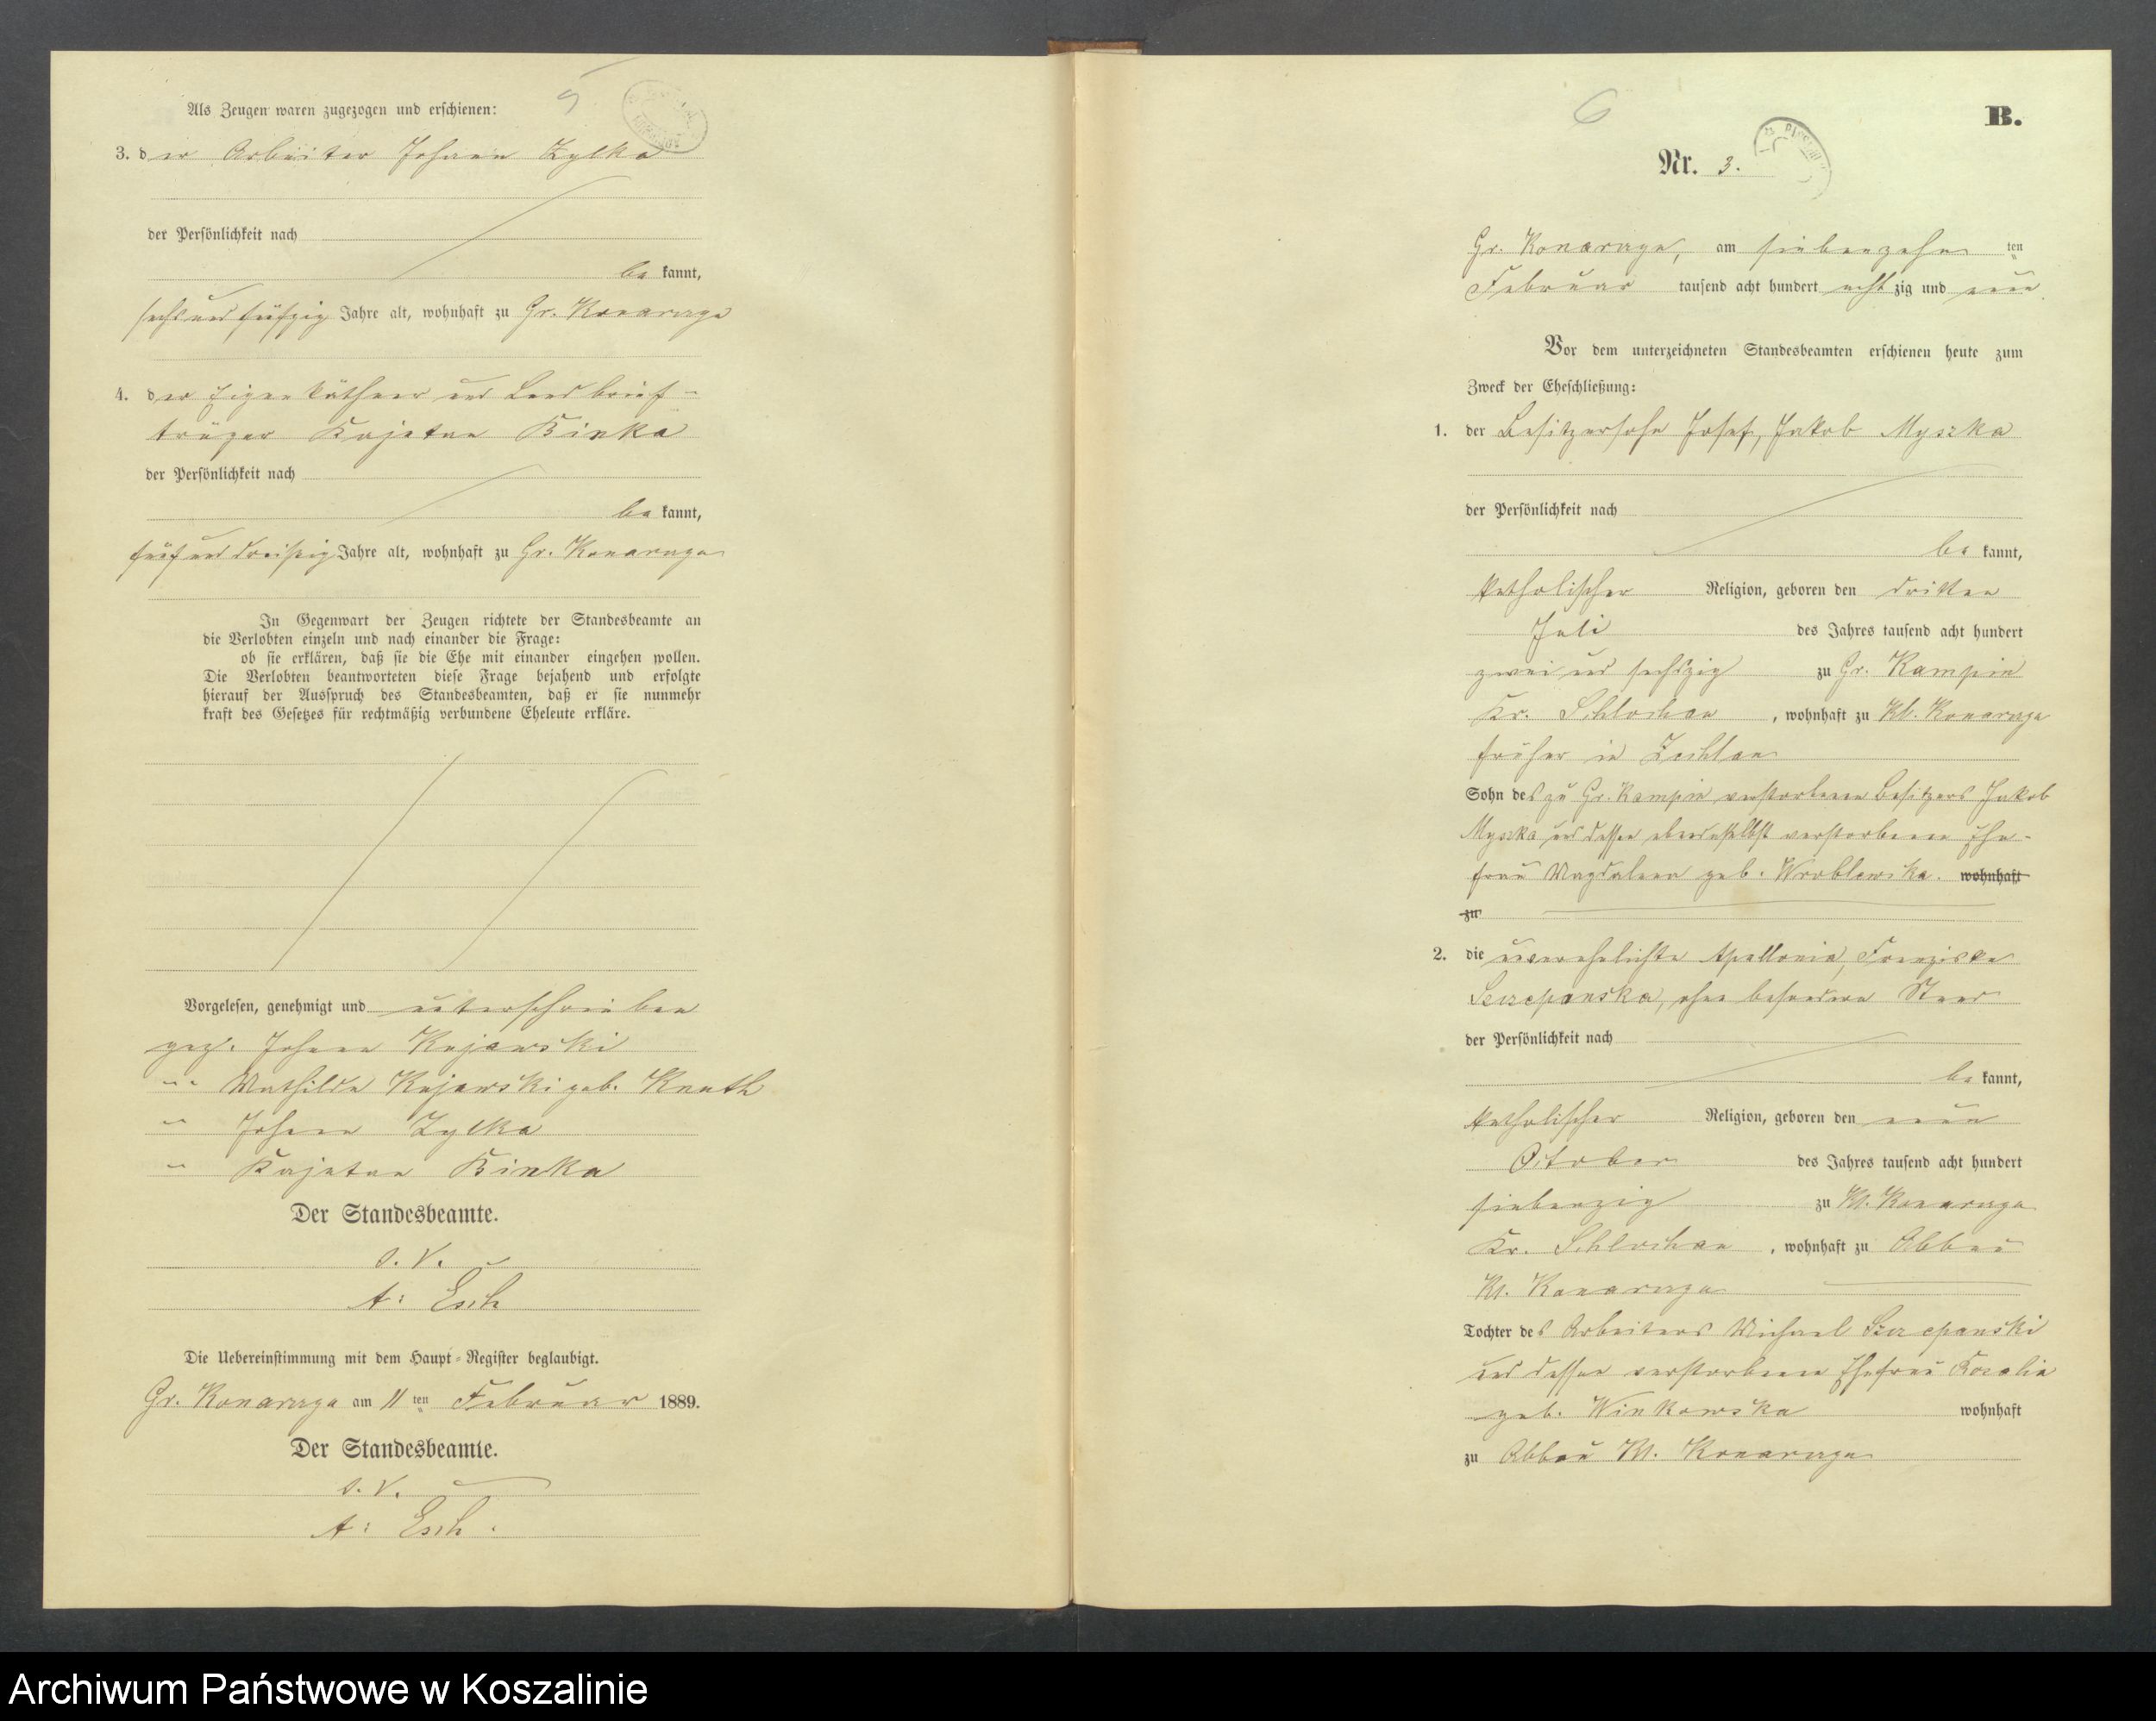 5
Als Zeugen waren zugezogen und erschienen:
3. der Arbeiter Johann Zylka
der Persönlichkeit nach
be kannt,
sechsundfünfzig Jahre alt, wohnhaft zu Gr. Konarzyn
4. der Eigenkäthner und Landbrief-
träger Kajetan Binka
der Persönlichkeit nach
be kannt,
fünfunddreißig Jahre alt, wohnhaft zu Gr. Konarzyn
In Gegenwart der Zeugen richtete der Standesbeamte an
die Verlobten einzeln und nach einander die Frage:
ob sie erklären, daß sie die Ehe mit einander eingehen wollen.
Die Verlobten beantworteten diese Frage bejahend und erfolgte
hierauf der Ausspruch des Standesbeamten, daß er sie nunmehr
kraft des Gesetzes für rechtmäßig verbundene Eheleute erkläre.
Vorgelesen, genehmigt und unterschrieben
gez. Johann Kujawski
" Mathilde Kujawski geb. Knuth
" Johann Zylka
" Kajetan Binka
Der Standesbeamte.
I. V.
A: Esch
Die Uebereinstimmung mit dem Haupt-Register beglaubigt.
Gr. Konarzyn am 11 ten Februar 1889.
Der Standesbeamte.
I. V.
A: Esch.
6
B.
Nr. 3.
Gr. Konarzyn, am siebenzehn ten
Februar tausend acht hundert acht zig und neun
Vor dem unterzeichneten Standesbeamten erschienen heute zum
Zweck der Eheschließung:
1. der Besitzersohn Josef, Jakob Myszka
der Persönlichkeit nach
be kannt,
katholischer Religion, geboren den dritten
Juli des Jahres tausend acht hundert
zwei und sechszig zu Gr. Kampin
Kr. Schlochau, wohnhaft zu Kl. Konarzyn
früher in Zechlau
Sohn des zu Gr. Kampin verstorbenen Besitzers Jakob
Myszka und dessen ebendaselbst verstorbenen Ehe-
frau Magdalena geb. Wroblewska. wohnhaft
zu
2. die unverehelichte Apollonia, Franziska
Szczepanska, ohne besonderen Stand
der Persönlichkeit nach
be kannt,
katholischer Religion, geboren den neun
October des Jahres tausend acht hundert
siebenzig zu Kl. Konarzyn
Kr. Schlochau, wohnhaft zu Abbau
Kl. Konarzyn
Tochter des Arbeiters Michael Szczepanski
und dessen verstorbenen Ehefrau Rosalia
geb. Winkowska wohnhaft
zu Abbau Kl. Konarzyn
Archiwum Państwowe w Koszalinie